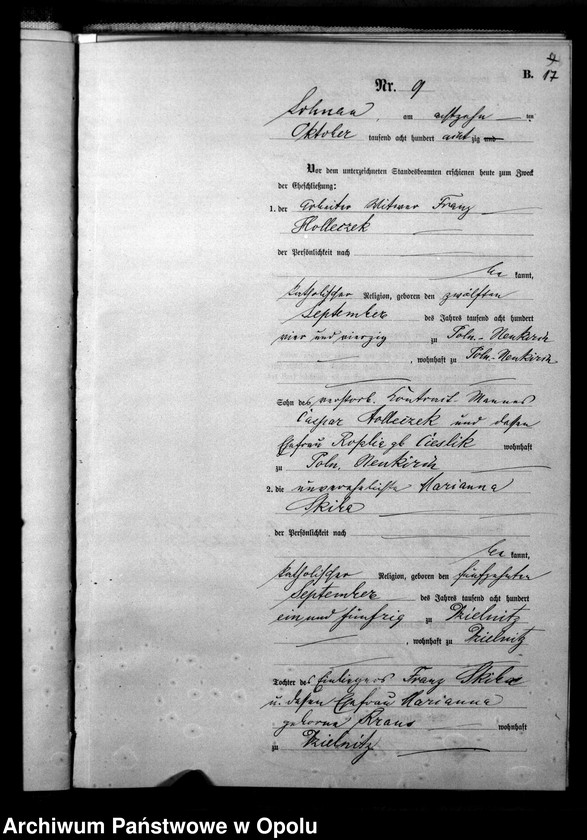 B. 17
Nr. 9
Lohnau, am achtzehn ten
Oktober tausend acht hundert acht zig und
Vor dem unterzeichneten Standesbeamten erschienen heute zum Zweck
der Eheschließung:
1. der Arbeiter Witwer Franz
Holleczek
der Persönlichkeit nach
be kannt,
katholischer Religion, geboren den zwölften
September des Jahres tausend acht hundert
vier und vierzig zu Poln.-Neukirch
, wohnhaft zu Poln.-Neukirch
Sohn des verstorb. Kontrakt-Mannes
Caspar Holleczek und dessen
Ehefrau Rosalie gb Cieslik wohnhaft
zu Poln. Neukirch
2. die unverehelichte Marianna
Skiba
der Persönlichkeit nach
be kannt,
katholischer Religion, geboren den fünfzehnten
September des Jahres tausend acht hundert
ein und fünfzig zu Dzielnitz
, wohnhaft zu Dzielnitz
Tochter des Einliegers Franz Skiba
u. dessen Ehefrau Marianna
geborne Kraus wohnhaft
zu Dzielnitz
Archiwum Państwowe w Opolu